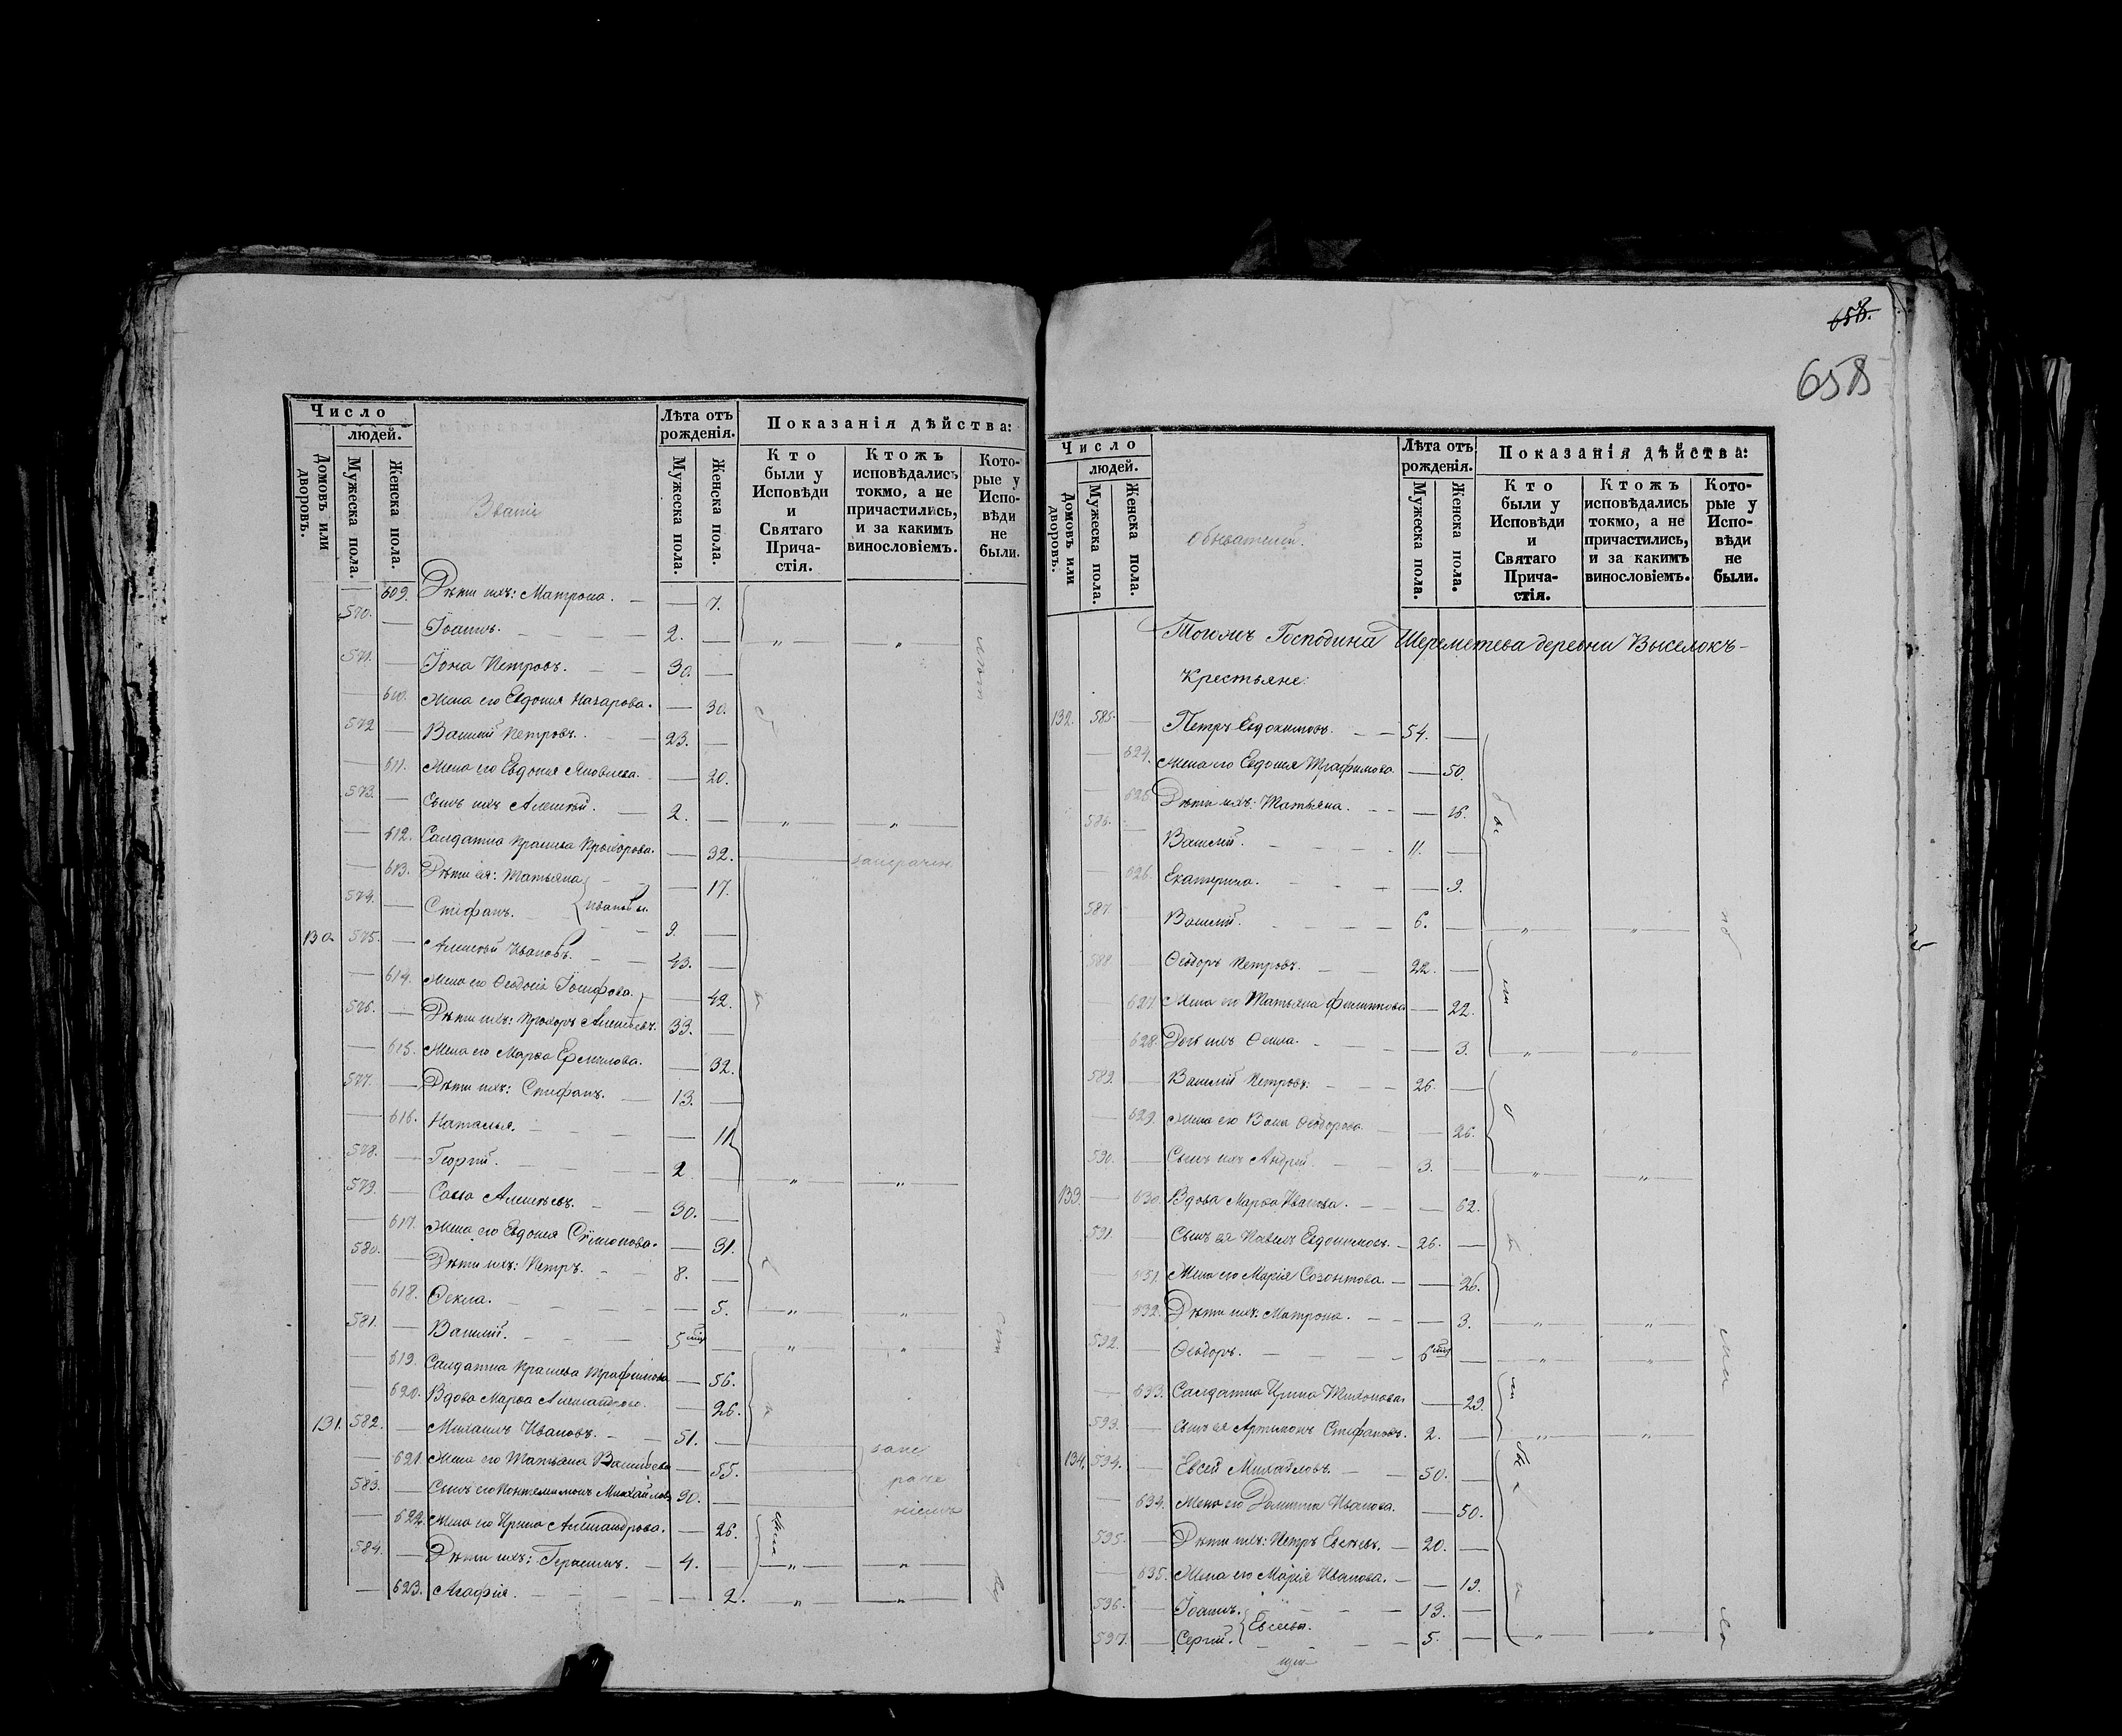 658.
658
Число
людей.
Домовъ или дворовъ.
Мужеска пола.
Женска пола.
Званiе
Лѣта отъ рожденія.
Мужеска пола.
Женска пола.
Показанія дѣйства:
Кто были у Исповѣди и Святаго Прича-стія.
Ктожъ исповѣдались токмо, а не причастились, и за какимъ винословіемъ.
Кото-рые у Испо-вѣди не были.
609. Дѣти ихъ: Матрона. 7.
570. Іоаннъ. 2.
571. Іона Петровъ. 30.
610. Жена его Евдокия Назарова. 30.
572 Василий Петровъ. 23.
611. Жена его Евдокия Яковлева. 20.
573. Сынъ ихъ Алексѣй. 2.
612. Салдатка Прохорова. 32.
613. Дѣти ея: Татьяна 17.
574. Стефанъ. Ивановы. 9.
130. 575. Алексѣй Ивановъ. 43.
614. Жена его Ѳеодосія Іосифова. 42.
576. Дѣти ихъ: Прохоръ Алексѣевъ. 33.
615. Жена его Марѳа Ермилова. 32.
577. Дѣти ихъ: Стефанъ. 13.
616. Наталья. 11.
578. Георгій. 2
579. Савва Алексѣевъ. 30.
617. Жена его Евдокия Сѵмионова. 31.
580. Дѣти ихъ: Петръ. 8.
618. Ѳекла. 5.
581. Василій. 5
619. Салдатка Трафимова 56.
620. Вдова Марѳа Александрова. 26.
131. 582. Михаилъ Ивановъ. 51.
621. Жена его Татьяна Васильева 55.
583. Сынъ его Пантелимонъ Михайловъ 30.
622. Жена его Ирина Александрова. 26.
584. Дѣти ихъ: Герасимъ. 4.
623. Агафія. 2.
Число
людей.
Домовъ или дворовъ.
Мужеска пола.
Женска пола.
Обывателей.
Лѣта отъ рожденія.
Мужеска пола.
Женска пола.
Показанія дѣйства:
Кто были у Исповѣди и Святаго Прича-стія.
Ктожъ исповѣдались токмо, а не причастились, и за какимъ винословіемъ.
Кото-рые у Испо-вѣди не были.
Тогожъ Господина Шереметева деревни Выселокъ
Крестьяне:
132. 585. Петръ Евдокимовъ. 54.
624. Жена его Евдокия Трафимова. 50.
625. Дѣти ихъ: Татьяна. 15.
586. Василій. 11.
626. Екатерина. 9.
587. Василій. 6.
588. Ѳеодоръ Петровъ. 22.
627. Жена его Татьяна Филиппова 22.
628. Дочь ихъ Ѳекла. 3.
589. Василій Петровъ. 26.
629. Жена его Васса Ѳеодорова. 26.
590. Сынъ ихъ Андрей. 3.
133. 630. Вдова Марѳа Иванова. 62.
591. Сынъ ея Павелъ Евдокимовъ. 26.
631. Жена его Марія Созонтова. 26.
632. Дѣти ихъ: Матрона. 3.
592. Ѳеодоръ. 6
633. Салдатка Ирина Тихонова 29.
593. Сынъ ея Артимонъ Стефановъ. 2.
134. 594. Евсей Михайловъ. 50.
634. Жена его Домника Иванова. 50.
595. Дѣти ихъ: Петръ Евсѣевъ. 20.
635. Жена его Марія Иванова. 19.
596. Іоаннъ. 13.
597. Сергій. Евсеевы. 5.